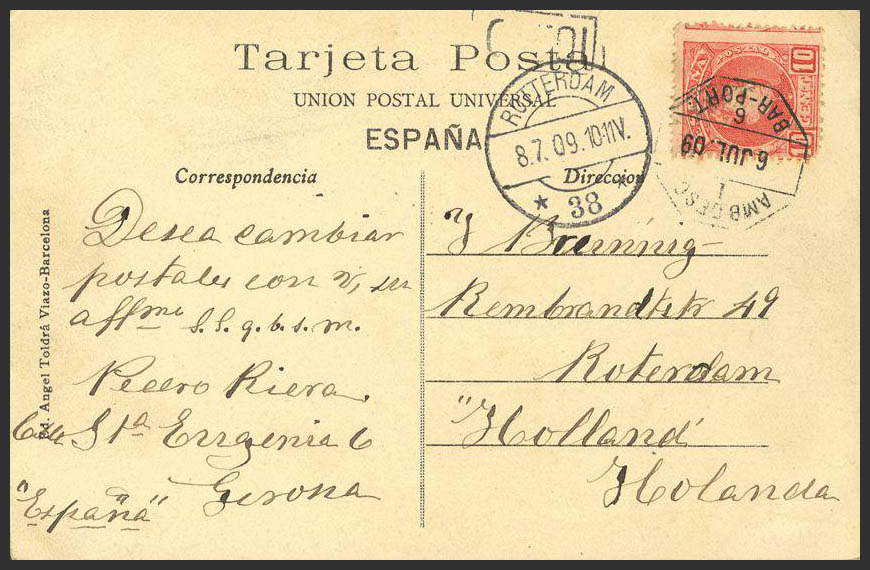 Tarjeta Posta
UNION POSTAL UNIVERSAL
ESPAÑA
ROTTERDAM
8.7.09.10-11V.
38
POSTAL
10
CENT
BAR-PORT.
6
6 JUL. 09
1
AMB DESC
Correspondencia
Direccion
Ed. Angel Toldrá Viazo-Barcelona
Desea cambiar
postales con V, su
affmo S.S.q.b.s.m.
Pedro Riera
Calle Sta Eugenia 6
Gerona
"España"
J Breuning
Rembrandtstr 49
Roterdam
"Holland"
Holanda